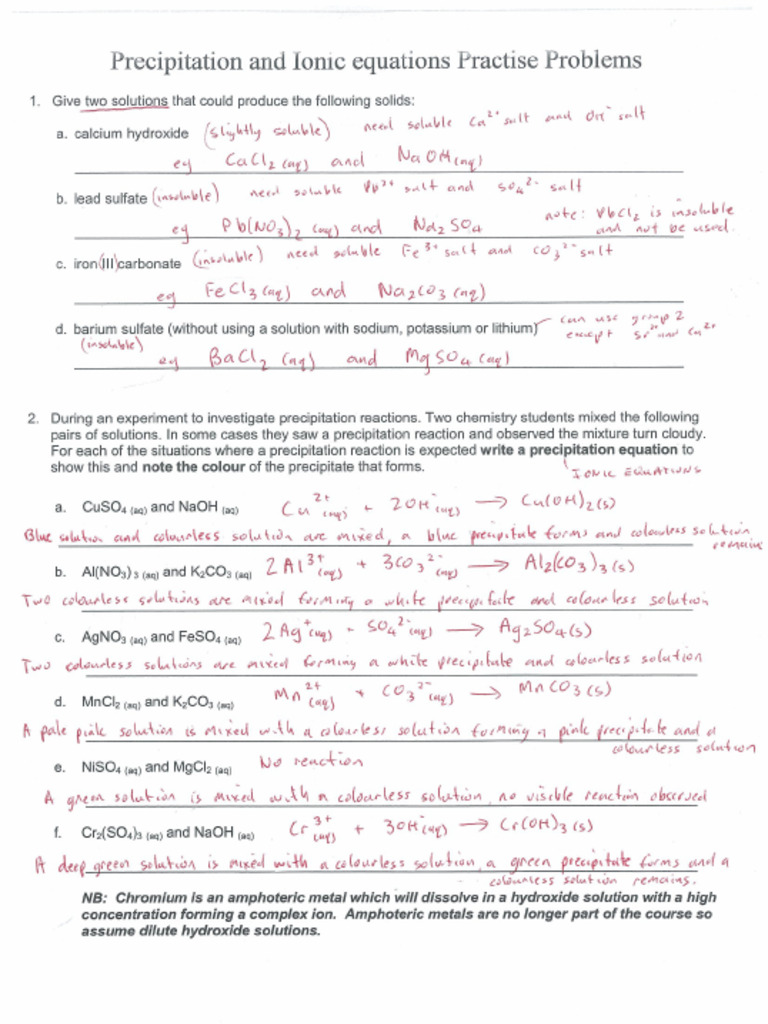 Precipitation and Ionic equations Practise Problems
1. Give two solutions that could produce the following solids:
a. calcium hydroxide (slightly soluble) need soluble Ca²⁺ salt and OH⁻ salt
eg CaCl₂ (aq) and NaOH (aq)
b. lead sulfate (insoluble) need soluble Pb²⁺ salt and SO₄²⁻ salt
eg Pb(NO₃)₂ (aq) and Na₂SO₄ note: PbCl₂ is insoluble
and not be used.
c. iron(III)carbonate (insoluble) need soluble Fe³⁺ salt and CO₃²⁻ salt
eg FeCl₃(aq) and Na₂CO₃ (aq)
d. barium sulfate (without using a solution with sodium, potassium or lithium) can use group 2
(insoluble) except Sr²⁺ and Ca²⁺
eg BaCl₂ (aq) and MgSO₄ (aq)
2. During an experiment to investigate precipitation reactions. Two chemistry students mixed the following
pairs of solutions. In some cases they saw a precipitation reaction and observed the mixture turn cloudy.
For each of the situations where a precipitation reaction is expected write a precipitation equation to
show this and note the colour of the precipitate that forms. IONIC EQUATIONS
a. CuSO₄ (aq) and NaOH (aq) Cu²⁺(aq) + 2OH⁻(aq) → Cu(OH)₂(s)
Blue solution and colourless solution are mixed, a blue precipitate forms and colourless solution
remains
b. Al(NO₃)₃ (aq) and K₂CO₃ (aq) 2Al³⁺(aq) + 3CO₃²⁻(aq) → Al₂(CO₃)₃(s)
Two colourless solutions are mixed forming a white precipitate and colourless solution
c. AgNO₃ (aq) and FeSO₄ (aq) 2Ag⁺(aq) + SO₄²⁻(aq) → Ag₂SO₄(s)
Two colourless solutions are mixed forming a white precipitate and colourless solution
d. MnCl₂ (aq) and K₂CO₃ (aq) Mn²⁺(aq) + CO₃²⁻(aq) → MnCO₃(s)
A pale pink solution is mixed with a colourless solution forming a pink precipitate and a
colourless solution
e. NiSO₄ (aq) and MgCl₂ (aq) No reaction
A green solution is mixed with a colourless solution, no visible reaction observed
f. Cr₂(SO₄)₃ (aq) and NaOH (aq) Cr³⁺(aq) + 3OH⁻(aq) → Cr(OH)₃(s)
A deep green solution is mixed with a colourless solution, a green precipitate forms and a
colourless solution remains.
NB: Chromium is an amphoteric metal which will dissolve in a hydroxide solution with a high
concentration forming a complex ion. Amphoteric metals are no longer part of the course so
assume dilute hydroxide solutions.